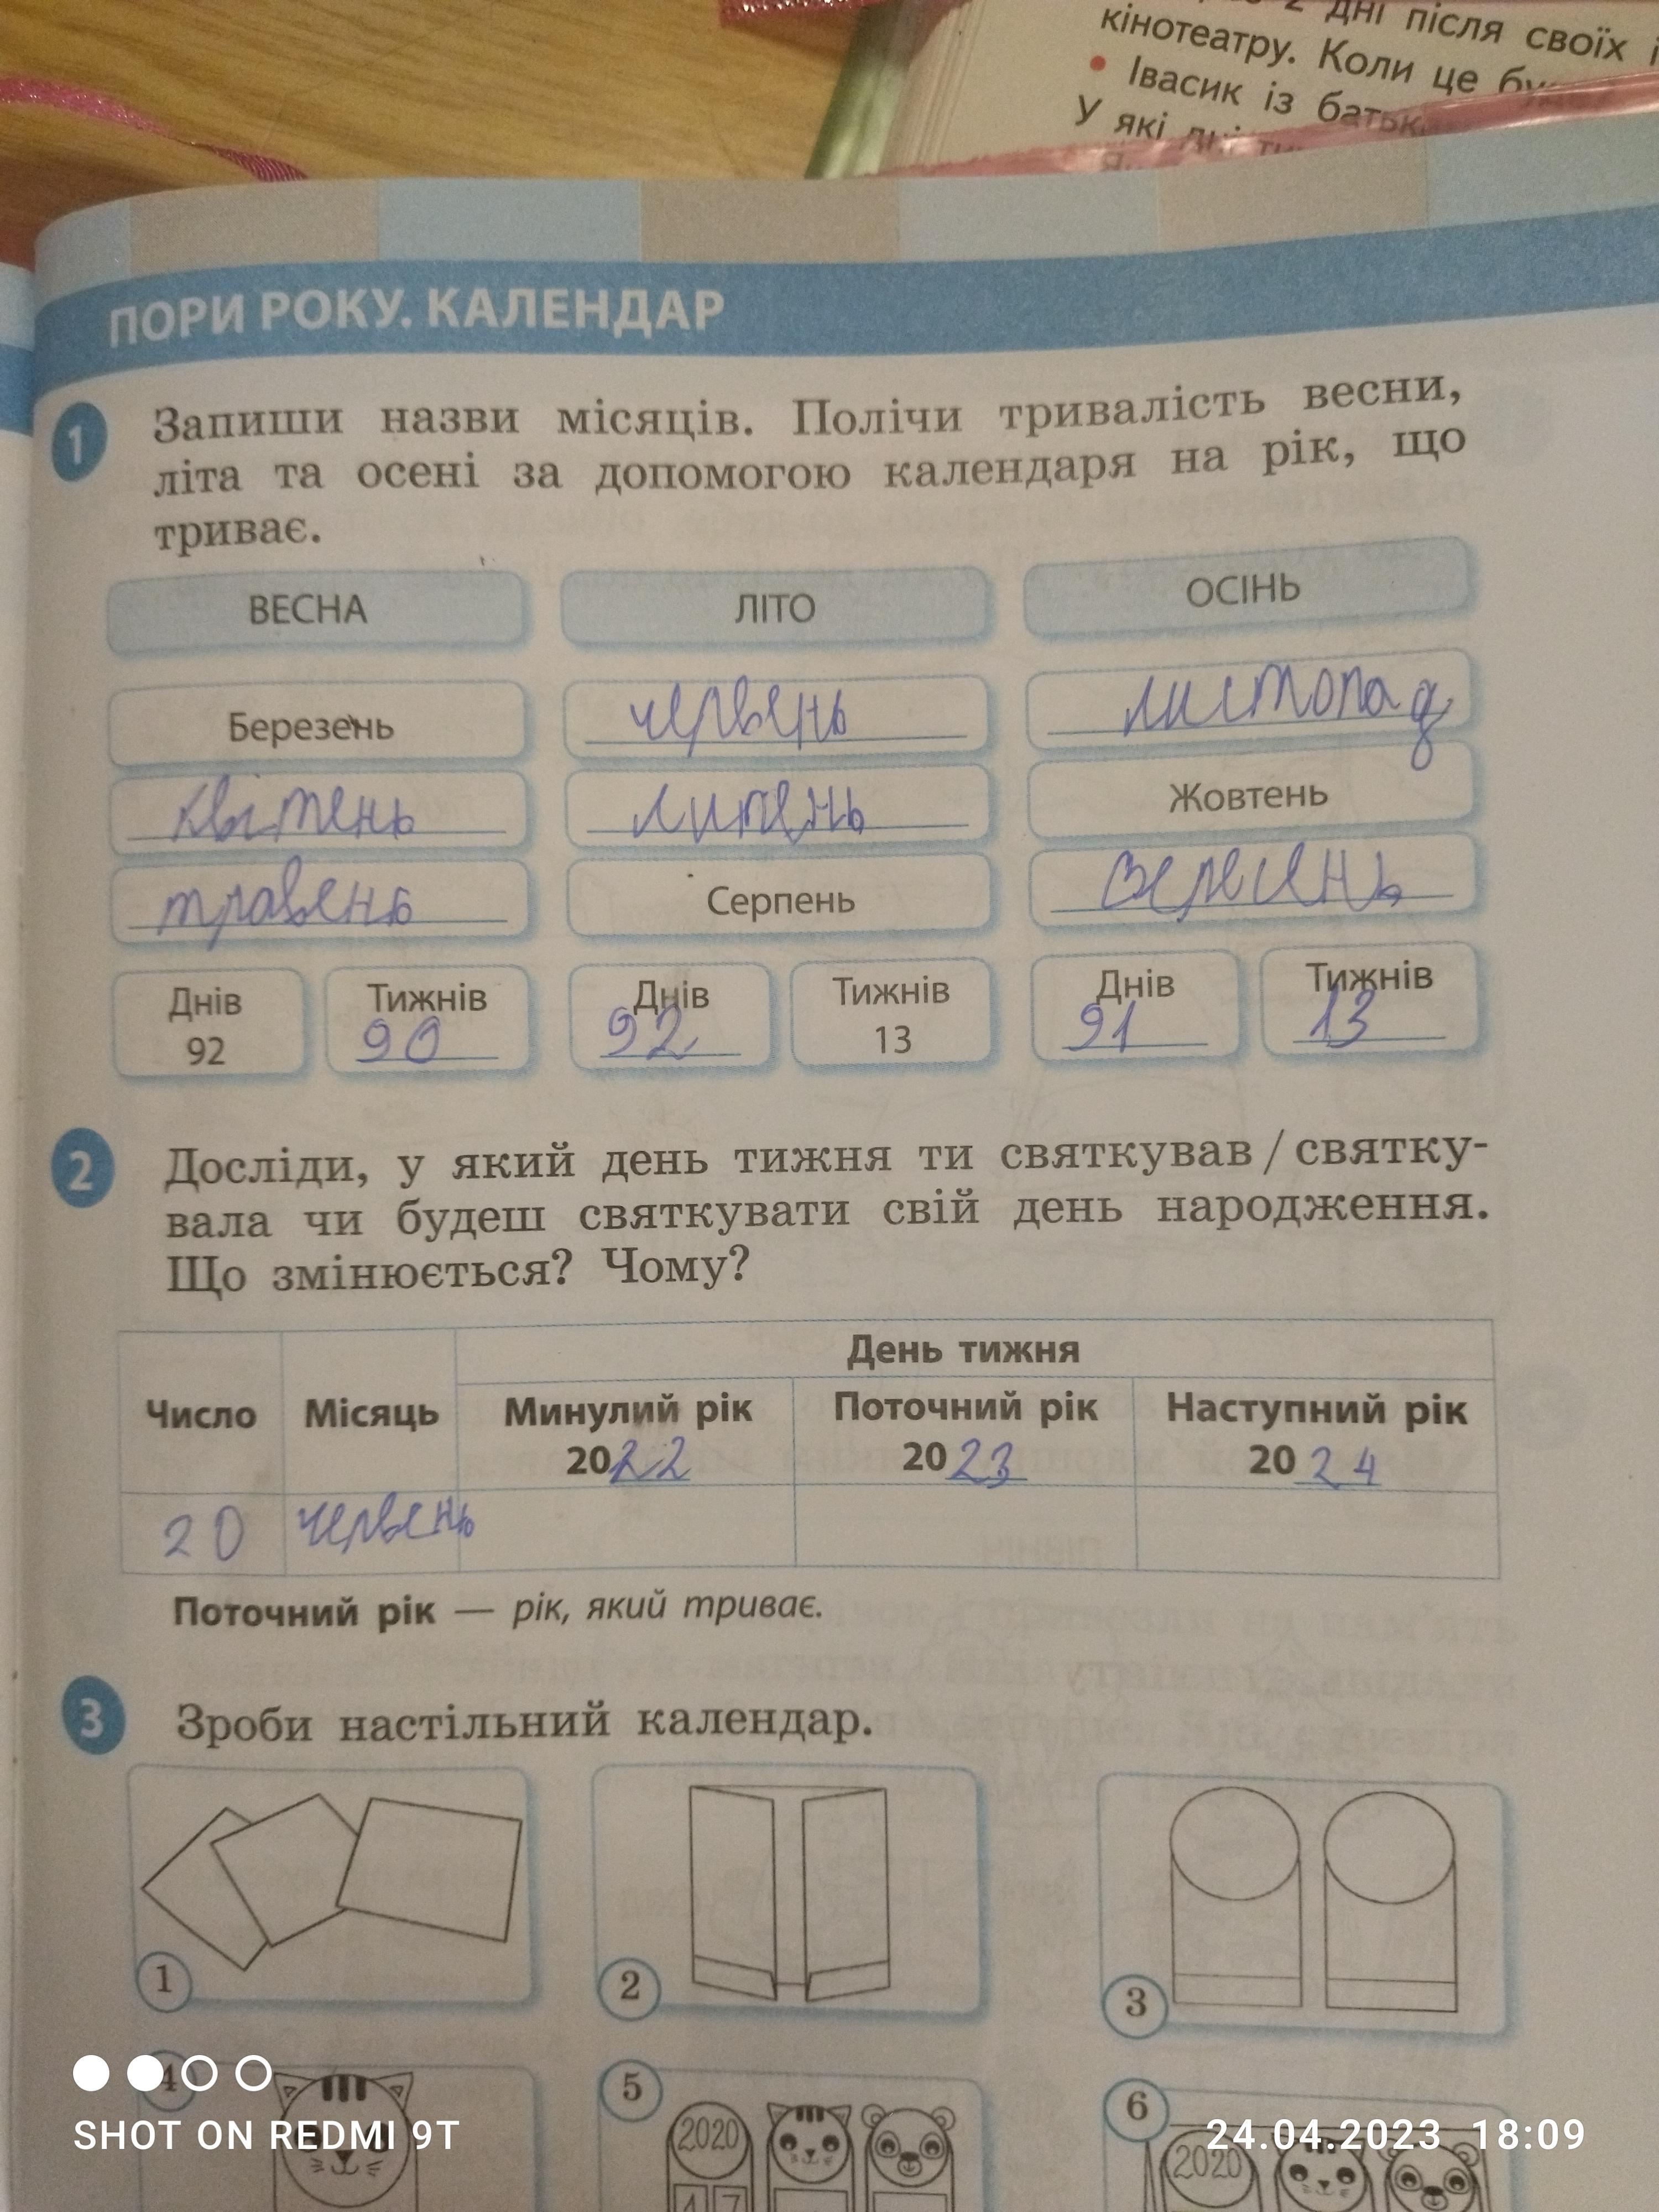 2 дні після своїх
кінотеатру. Коли це
• Івасик із
У які дні
ПОРИ РОКУ. КАЛЕНДАР
1 Запиши назви місяців. Полічи тривалість весни,
літа та осені за допомогою календаря на рік, що
триває.
ВЕСНА ЛІТО ОСІНЬ
Березень червень листопад
квітень липень Жовтень
травень Серпень вересень
Днів Тижнів Днів Тижнів Днів Тижнів
92 90 92 13 91 13
2 Досліди, у який день тижня ти святкував / святку-
вала чи будеш святкувати свій день народження.
Що змінюється? Чому?
День тижня
Число Місяць Минулий рік Поточний рік Наступний рік
2022 2023 2024
20 червень
Поточний рік — рік, який триває.
3 Зроби настільний календар.
1 2 3
4 5 6
2020 2020
4 7
SHOT ON REDMI 9T 24.04.2023 18:09